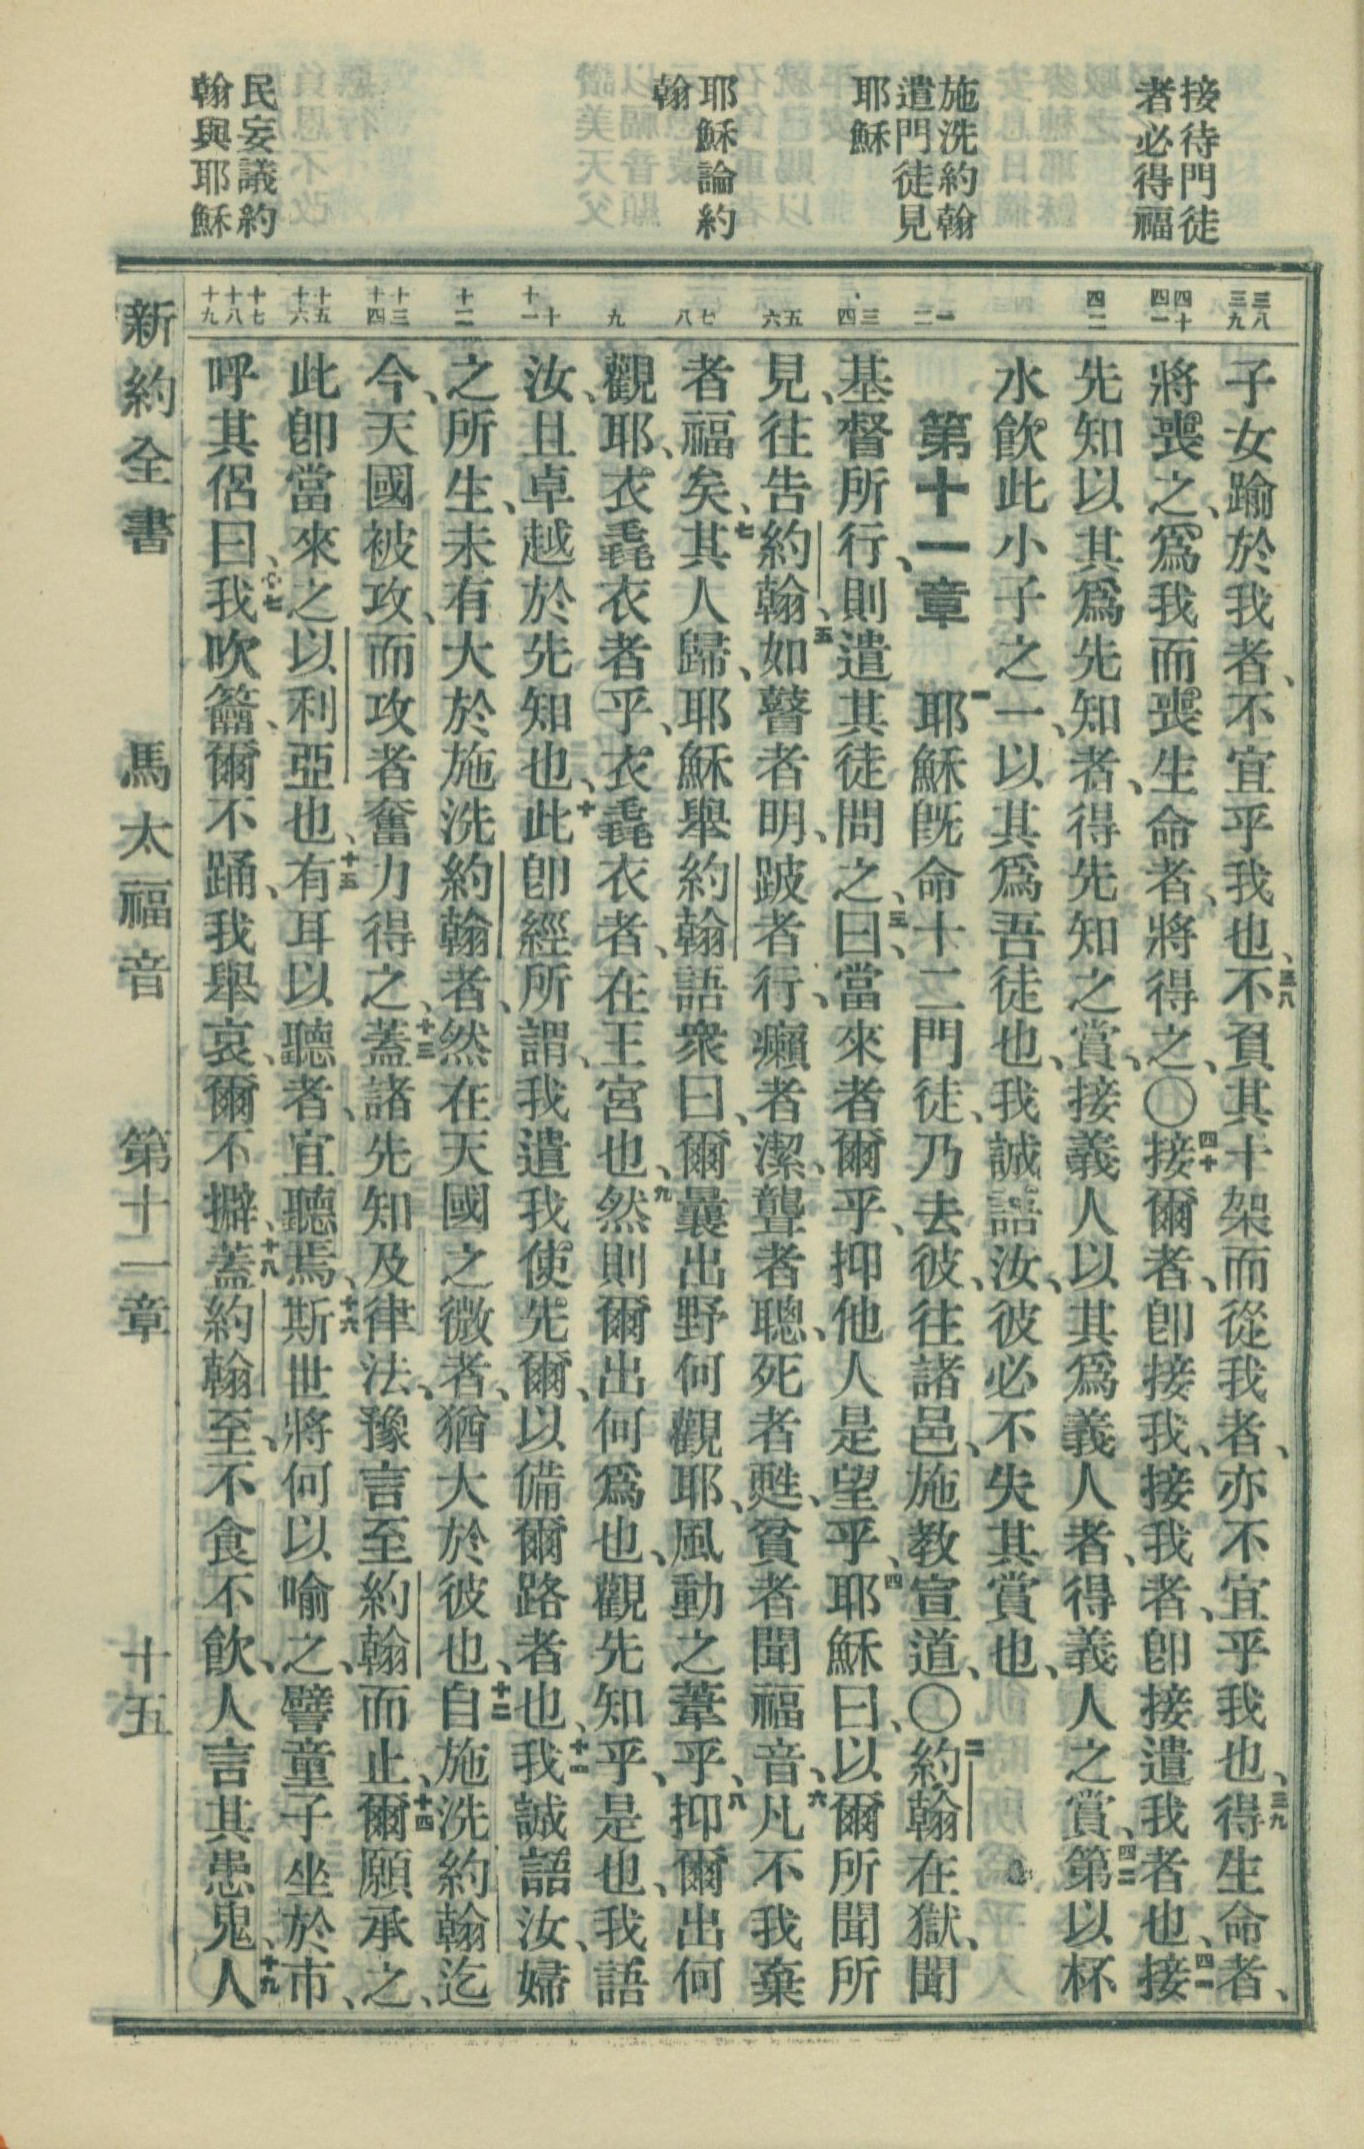 接待門徒
者必得福
施洗約翰
遣門徒見
耶穌
耶穌論約
翰
民妄議約
翰與耶穌
三八 三九
四十 四一
四二
一 二
三 四
五 六
七 八
九
十 十一
十二
十三 十四
十五 十六
十七 十八 十九
子女踰於我者、不宜乎我也、三八不負其十架而從我者、亦不宜乎我也、三九得生命者、
將喪之、爲我而喪生命者、將得之、〇四十接爾者、卽接我、接我者、卽接遣我者也、四一接
先知以其爲先知者、得先知之賞、接義人以其爲義人者、得義人之賞、四二第以杯
水飲此小子之一、以其爲吾徒也、我誠語汝、彼必不失其賞也、
第十一章 一耶穌旣命十二門徒、乃去彼、往諸邑、施教宣道、〇二約翰在獄、聞
基督所行、則遣其徒問之、三曰、當來者爾乎、抑他人是望乎、四耶穌曰、以爾所聞所
見、往告約翰、五如瞽者明、跛者行、癩者潔、聾者聰、死者甦、貧者聞福音、六凡不我棄
者福矣、七其人歸、耶穌舉約翰語衆曰、爾曩出野何觀耶、風動之葦乎、八抑爾出何
觀耶、衣毳衣者乎、衣毳衣者、在王宮也、九然則爾出何爲也、觀先知乎、是也、我語
汝、且卓越於先知也、十此卽經所謂、我遣我使、先爾、以備爾路者也、十一我誠語汝、婦
之所生、未有大於施洗約翰者、然在天國之微者、猶大於彼也、十二自施洗約翰迄
今、天國被攻、而攻者奮力得之、十三蓋諸先知及律法、豫言至約翰而止、十四爾願承之、
此卽當來之以利亞也、十五有耳以聽者、宜聽焉、十六斯世將何以喻之、譬童子坐於市、
呼其侶曰、十七我吹籥、爾不踊、我舉哀、爾不擗、十八蓋約翰至、不食不飲、人言其患鬼、十九人
新約全書 馬太福音 第十一章 十五